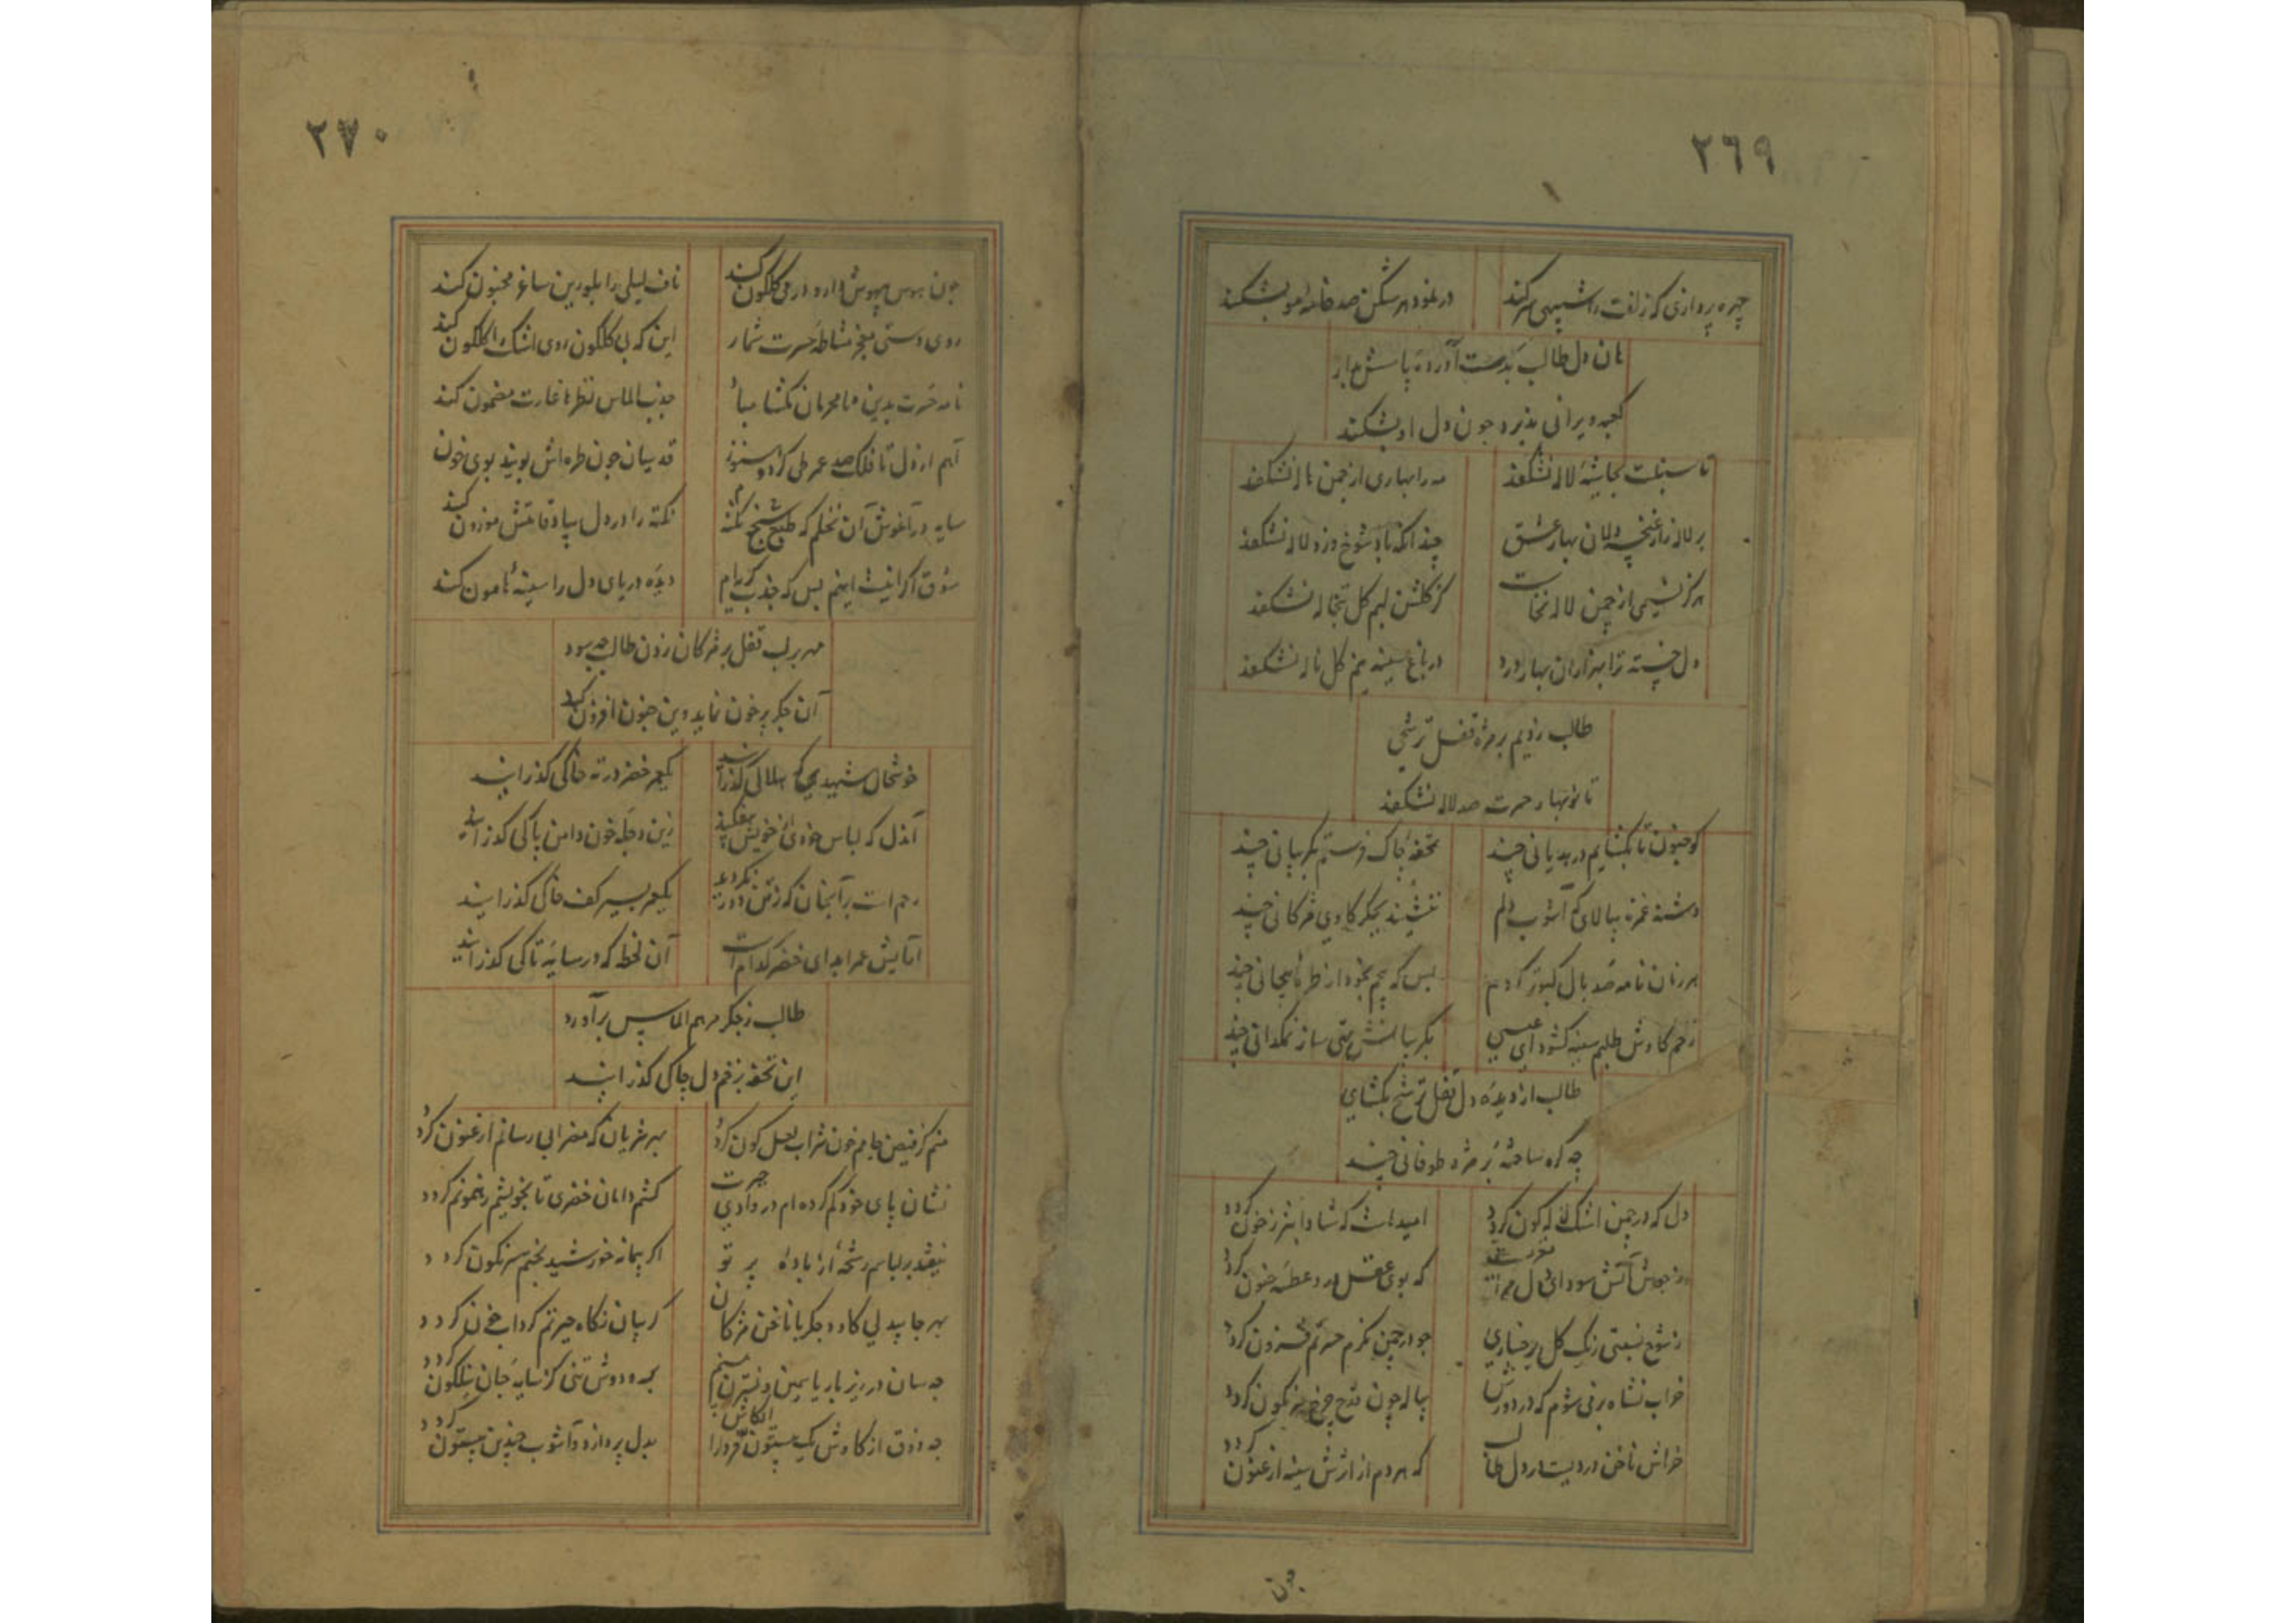 ٢٦٩
چهره پردازی که زلفت را شبیهی سر کند
در نمود هر شکن صد خامهٔ مو بشکند
هان دل طالب بدست آورده پاسش بدار
کعبه ویرانی پذیرد چون دل او بشکند
تا سنبلت بحاشیهٔ لاله نشکفد
مه را بهاری از چمن هاله نشکفد
بر لاله زار غنچه دلان بهار عشق
چندانکه باد شوخ وزد لاله نشکفد
هرگز نسیمی از چمن لاله نخاست
کز گلشن لبم گل تبخاله نشکفد
دل خسته ترا بهزاران بهار درد
در باغ سینه جز گل ناله نشکفد
طالب زدیم بر مژه قفل ترشحی
تا نوبهار حسرت صد لاله نشکفد
کو جنون تا بگشایم در هذیانی چند
تحفهٔ چاک فرستم بگریبانی چند
دشنهٔ غمزه بیالای که آشوب دلم
ننشیند بجگر کاوی مژگانی چند
هر زمان نامه صد بال کبوتر گردم
بس که پیچم بخود از طرهٔ پیچانی چند
زخم کاوش طلبم سینه گشود ای عیسی
بگریبانش تهی ساز نمکدانی چند
طالب از دیده و دل قفل ترشح بگشای
چه گره ساخته بر مژه طوفانی چند
دل که در چمن اشک لاله گون گردد
امید است که شادابتر ز خون گردد
ز جوش آتش سودای دل
که بوی عقل در و عطسهٔ جنون گردد
ز شوخ نسبتی رنگ گل برخساری
چو در چمن نگرم حسرتم فزون گردد
خراب نشاه برفی شوم که در دورش
پیاله چون قدح چرخ سرنگون گردد
خراش ناخن دردیست در دل طالب
که هر دم از اثرش سینه ارغنون گردد
چون
٢٧٠
چون بهوس بیهوش دارو در می گلگون کند
ناف لیلی را بلورین ساغر مجنون کند
روی دستی میخرم مشاطهٔ حسرت شمار
این که بی گلگون روی اشک را گلگون کند
نامه حسرت بدین نامحرمان مگشا مباد
جذب الماس نظرها غارت مضمون کند
آهم از دل تا فلک صد عمر طی کرد و هنوز
قدسیان چون طره‌اش بویند بوی خون کند
سایه در آغوش آن نخلم که طبع شیخ نکته
نکته را در دل بیاد قامتش موزون کند
شوق اگر اینست اینم بس که جذب گریه‌ام
دیده دریای دل را سینهٔ هامون کند
مهر بر لب قفل بر مژگان زدن طالب چه سود
آن جگر پر خون نماید وین جنون افزون کند
خوشحال شهیدی که بهلاکی گذرانید
یکعمر خضر در ته خاکی گذرانید
آندل که لباس خودی از خویش بیفکند
زین دجلهٔ خون دامن پاکی گذرانید
رحم است بر آنجان که ز تن دور نکردند
یکعمر بسر کف خاکی گذرانید
آسایش عمر ابد ای خضر کدام است
آن لحظه که در سایهٔ تاکی گذرانید
طالب ز جگر مرهم الماس برآورد
این تحفه بزخم دل چاکی گذرانید
منم کز فیض جامم خون شراب لعل گون گردد
بهر شریان که مضرابی رسانم ارغنون گردد
نشان پای خود گم کرده‌ام در وادی حیرت
کشم دامان خضری تا بخویشم رهنمون گردد
نیفتد بر لبم رشحهٔ از بادهٔ پر تو
اگر پیمانهٔ خورشید بختم سرنگون گردد
بهر جا بیدلی کاود جگر با ناخن مژگان
گریبان نگاه حیرتم گرداب خون گردد
چه سان در زیر بار یاسمین و نسترن بینم
بر و دوش تنی کز سایهٔ جان نیلگون گردد
چه ذوق از کاوش یک بیستون فرهاد را ایکاش
بدل پردازد و آشوب چندین بیستون گردد